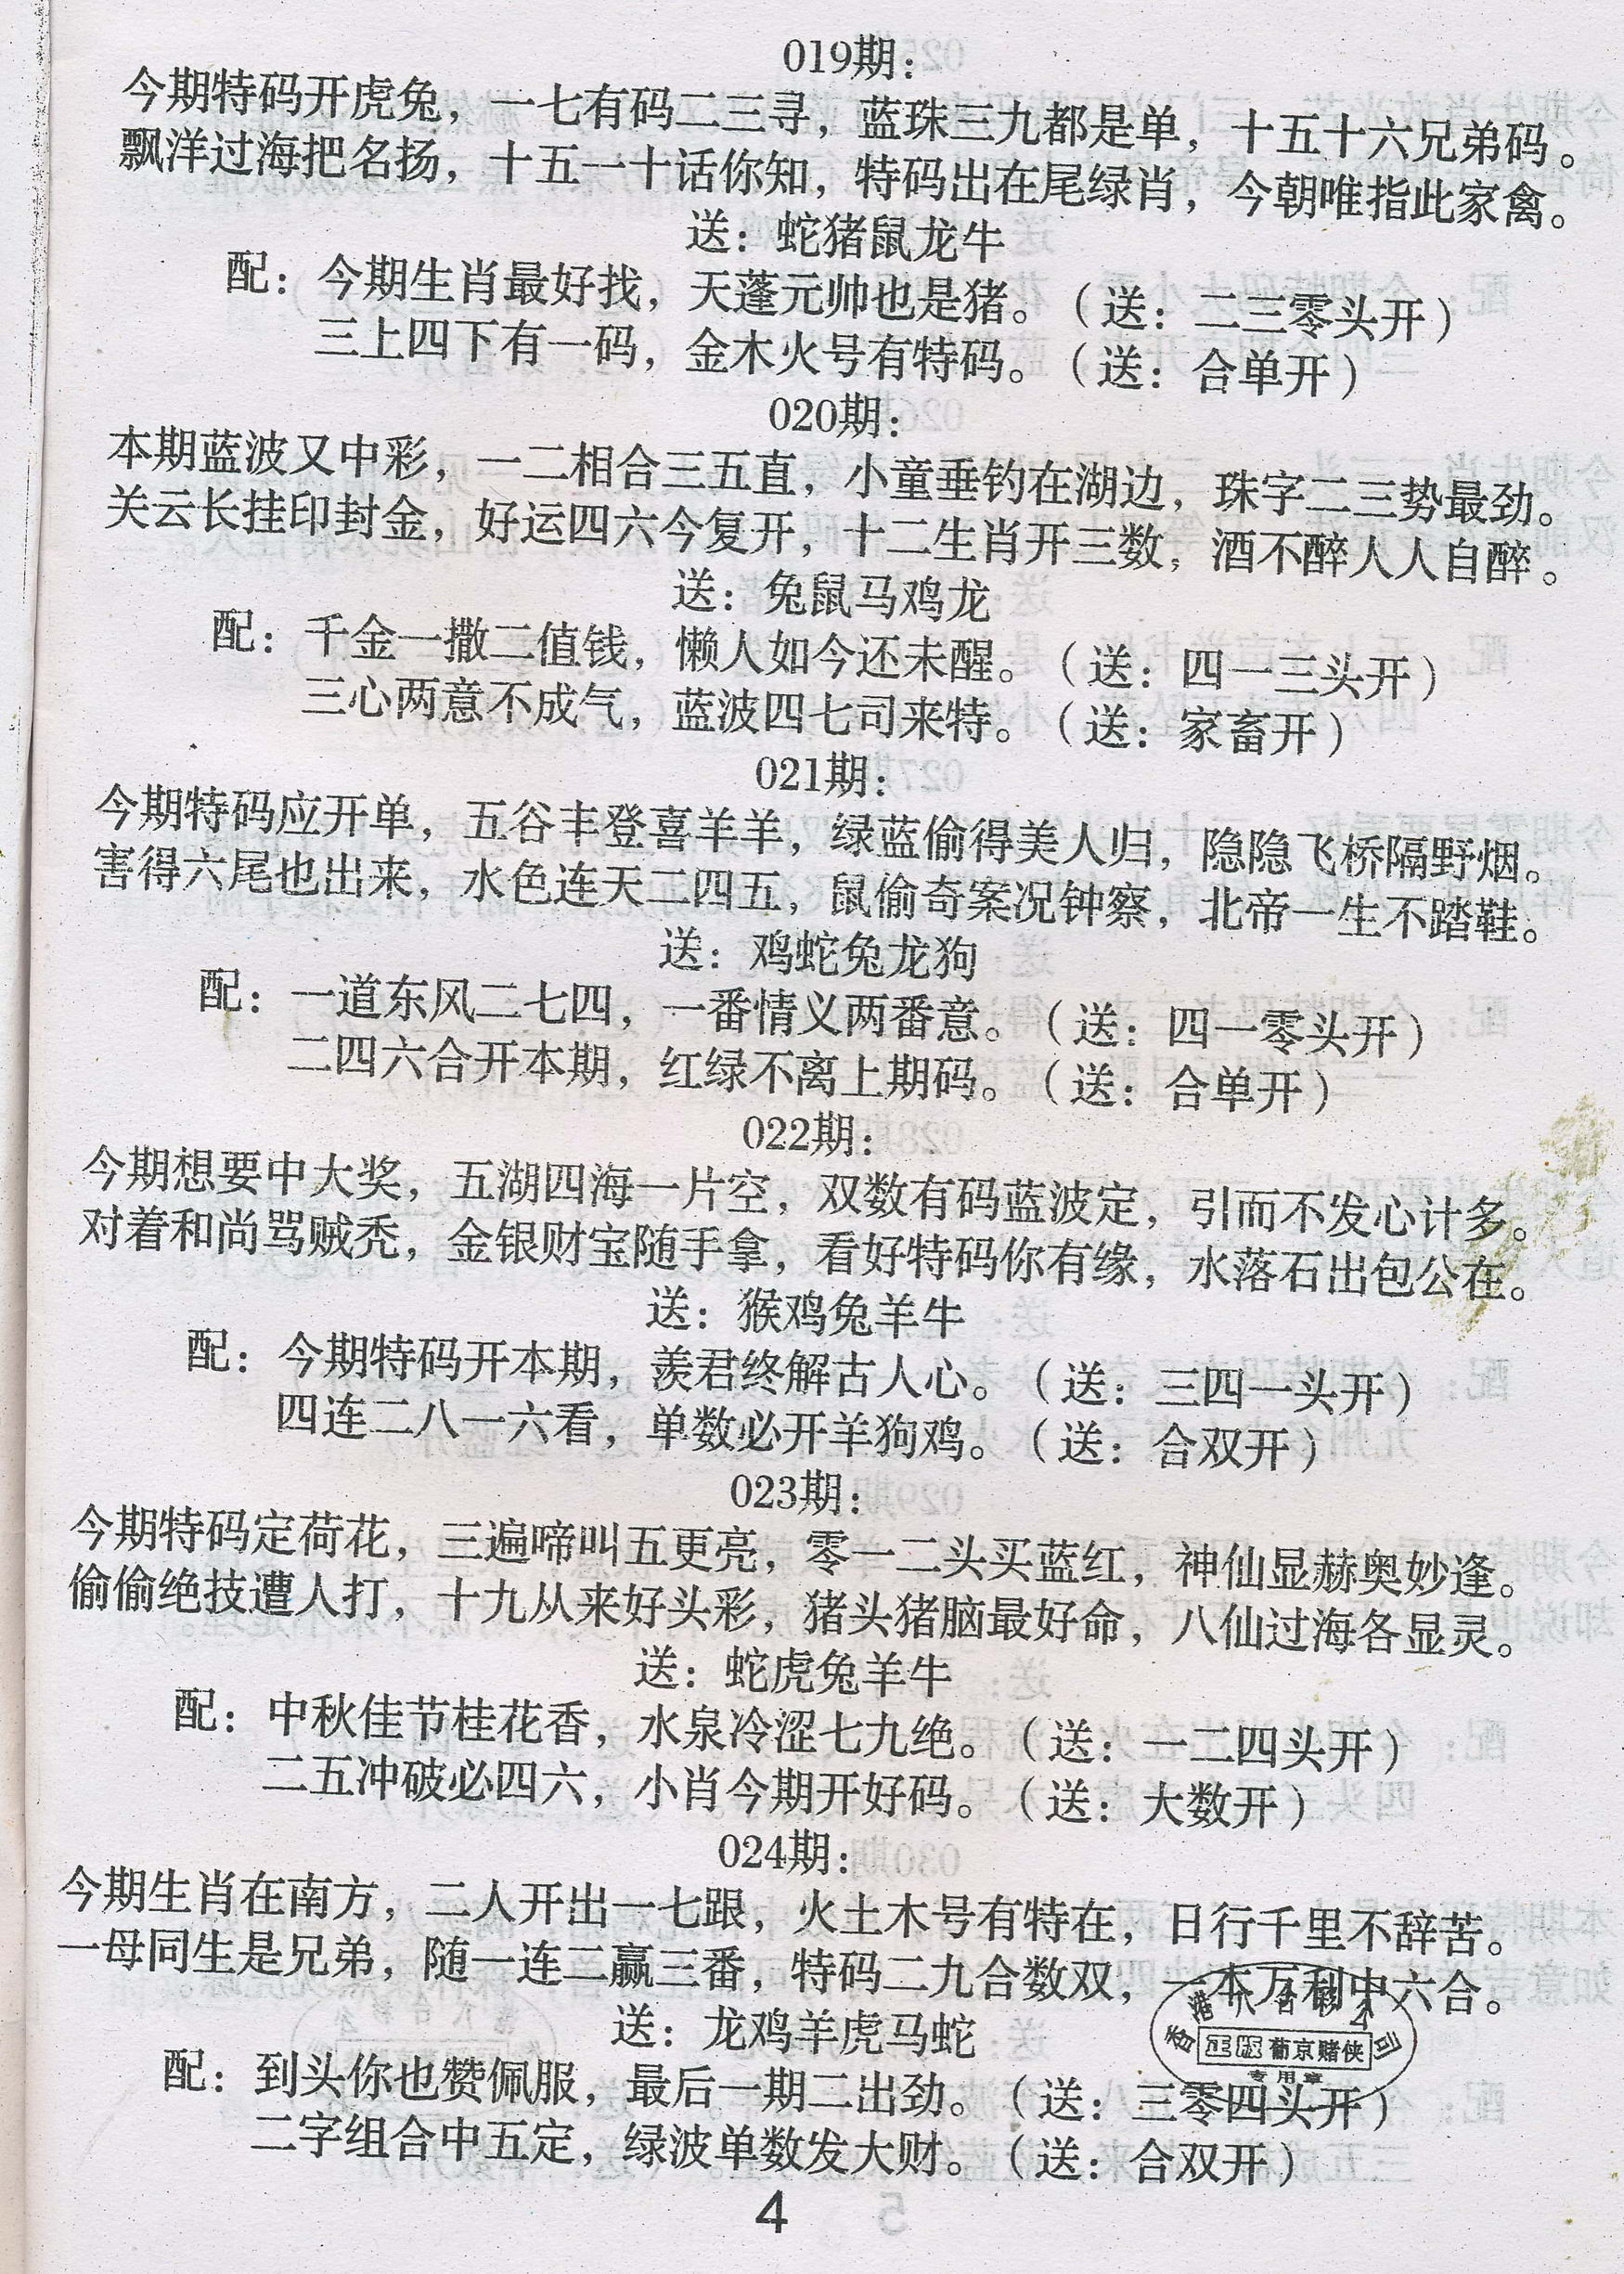 019期：
今期特码开虎兔，一七有码二三寻，蓝珠三九都是单，十五十六兄弟码。
飘洋过海把名扬，十五一十话你知，特码出在尾绿肖，今朝唯指此家禽。
送：蛇猪鼠龙牛
配：今期生肖最好找，天蓬元帅也是猪。（送：二三零头开）
三上四下有一码，金木火号有特码。（送：合单开）
020期：
本期蓝波又中彩，一二相合三五直，小童垂钓在湖边，珠字二三势最劲。
关云长挂印封金，好运四六今复开，十二生肖开三数，酒不醉人人自醉。
送：兔鼠马鸡龙
配：千金一撒二值钱，懒人如今还未醒。（送：四一三头开）
三心两意不成气，蓝波四七司来特。（送：家畜开）
021期：
今期特码应开单，五谷丰登喜羊羊，绿蓝偷得美人归，隐隐飞桥隔野烟。
害得六尾也出来，水色连天二四五，鼠偷奇案况钟察，北帝一生不踏鞋。
送：鸡蛇兔龙狗
配：一道东风二七四，一番情义两番意。（送：四一零头开）
二四六合开本期，红绿不离上期码。（送：合单开）
022期：
今期想要中大奖，五湖四海一片空，双数有码蓝波定，引而不发心计多。
对着和尚骂贼秃，金银财宝随手拿，看好特码你有缘，水落石出包公在。
送：猴鸡兔羊牛
配：今期特码开本期，羡君终解古人心。（送：三四一头开）
四连二八一六看，单数必开羊狗鸡。（送：合双开）
023期：
今期特码定荷花，三遍啼叫五更亮，零一二头买蓝红，神仙显赫奥妙逢。
偷偷绝技遭人打，十九从来好头彩，猪头猪脑最好命，八仙过海各显灵。
送：蛇虎兔羊牛
配：中秋佳节桂花香，水泉冷涩七九绝。（送：一二四头开）
二五冲破必四六，小肖今期开好码。（送：大数开）
024期：
今期生肖在南方，二人开出一七跟，火土木号有特在，日行千里不辞苦。
一母同生是兄弟，随一连二赢三番，特码二九合数双，一本万利中六合。
送：龙鸡羊虎马蛇
香港六合彩公司
正版 葡京赌侠
专用章
配：到头你也赞佩服，最后一期二出劲。（送：三零四头开）
二字组合中五定，绿波单数发大财。（送：合双开）
4